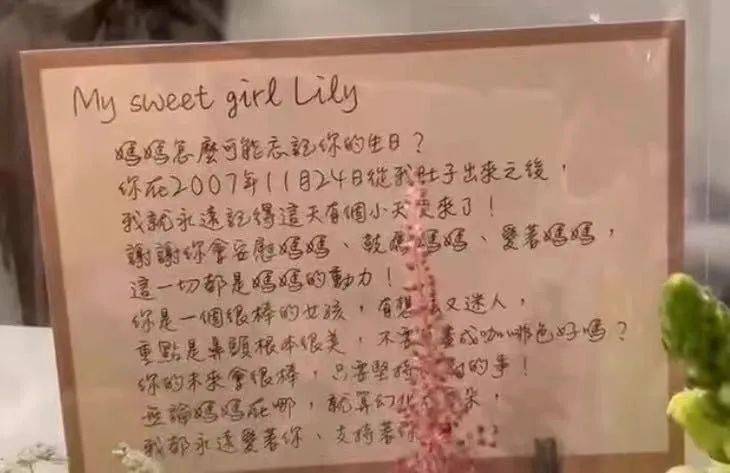 My sweet girl Lily
媽媽怎麼可能忘記你的生日？
你在2007年11月24日從我肚子出來之後，
我就永遠記得這天有個小天使來了！
謝謝你會安慰媽媽、鼓媽媽、愛著媽媽，
這一切都是媽媽的動力！
你是一個很棒的女孩，有想又迷人，
重點是鼻頭根本很美，不要畫成咖啡色好嗎？
你的未來會很棒，只要堅持的事！
無論媽媽在哪，就算幻化朵，
我都永遠愛著你、支持著你